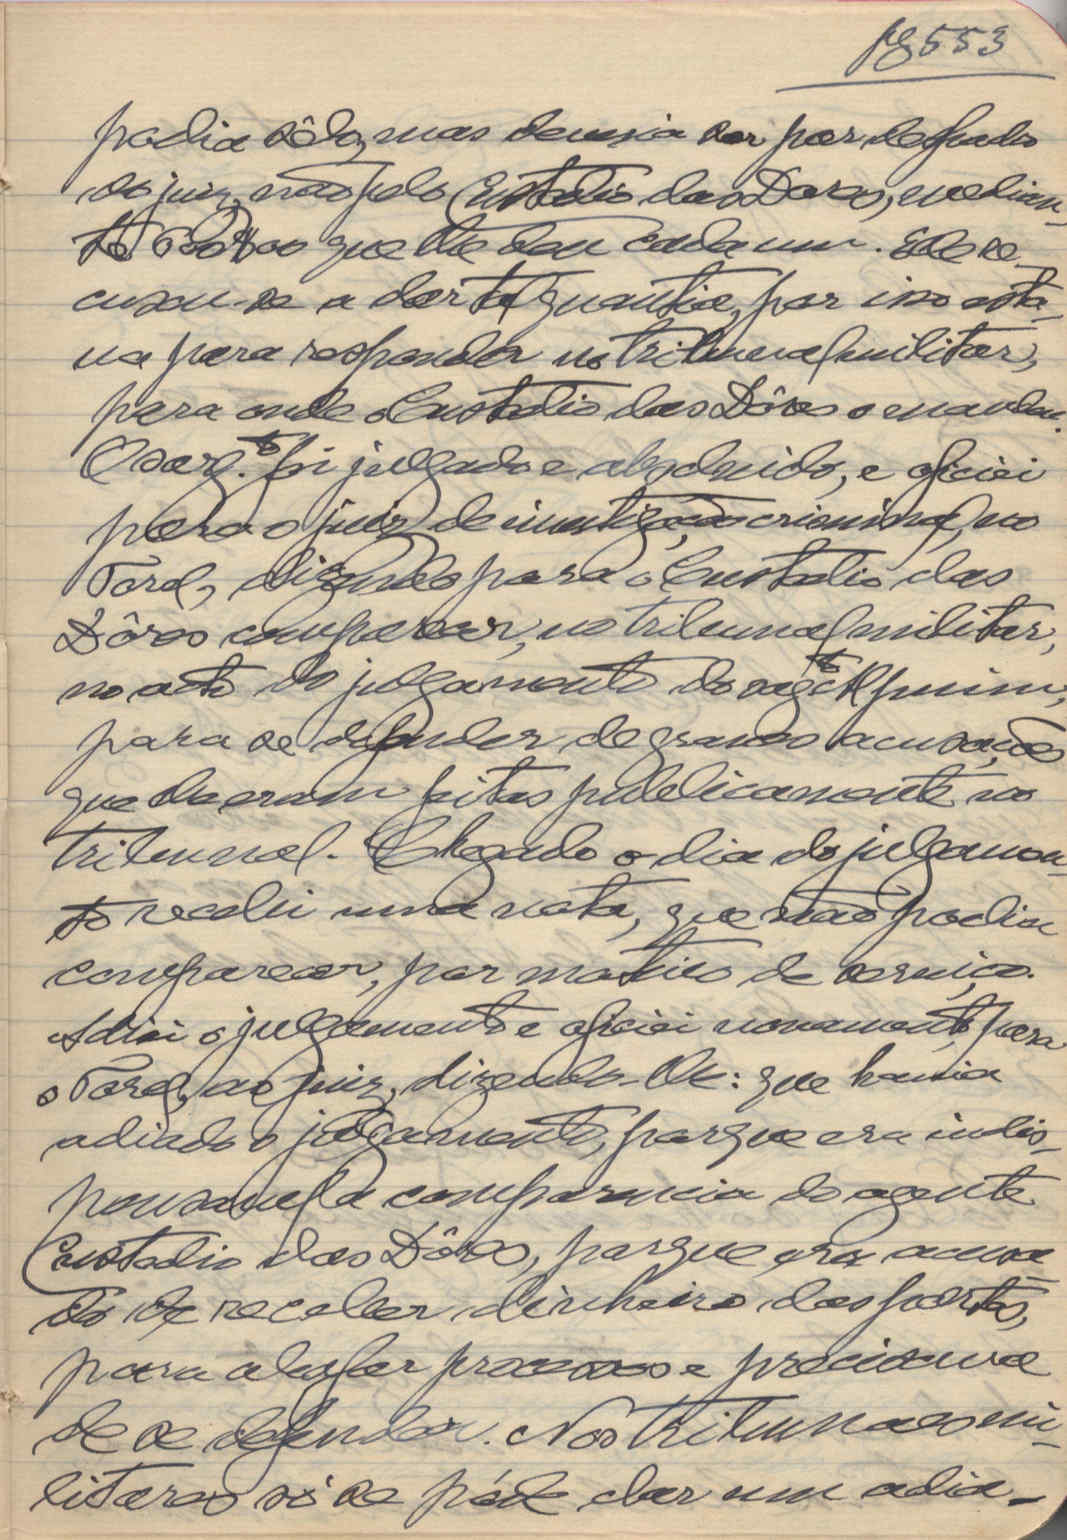 pg 553
podia sêlo, mas devia ser por despacho
do juiz, não pelo Custodio das Dores, median-
te que lhe deu cada um. Ele re-
cusou-se a dar tal quantia, por isso esta-
va para responder no tribunal militar,
para onde o Custodio das Dôres o mandou.
O sarg.to foi julgado e absolvido, e oficiei
para o juiz de investigação criminal, no
Torel, dizendo para o Custodio das
Dôres comparecer, no tribunal militar,
no acto do julgamento do sargto
para se defender de graves acusações
que lhe eram feitas publicamente no
tribunal. Chegado o dia do julgamen-
to recebi uma nota, que não podia
comparecer, por motivo de serviço.
Adiei o julgamento e oficiei novamente, para
o Torel, ao juiz, dizendo-lhe: que havia
adiado o julgamento, porque era indis-
pensavel a comparencia do agente
Custodio das Dôres, porque era acusa-
do de receber dinheiro das partes,
para abafar processos e precisava
de se defender. Nos tribunaes mi-
litares só se póde dar um adia-